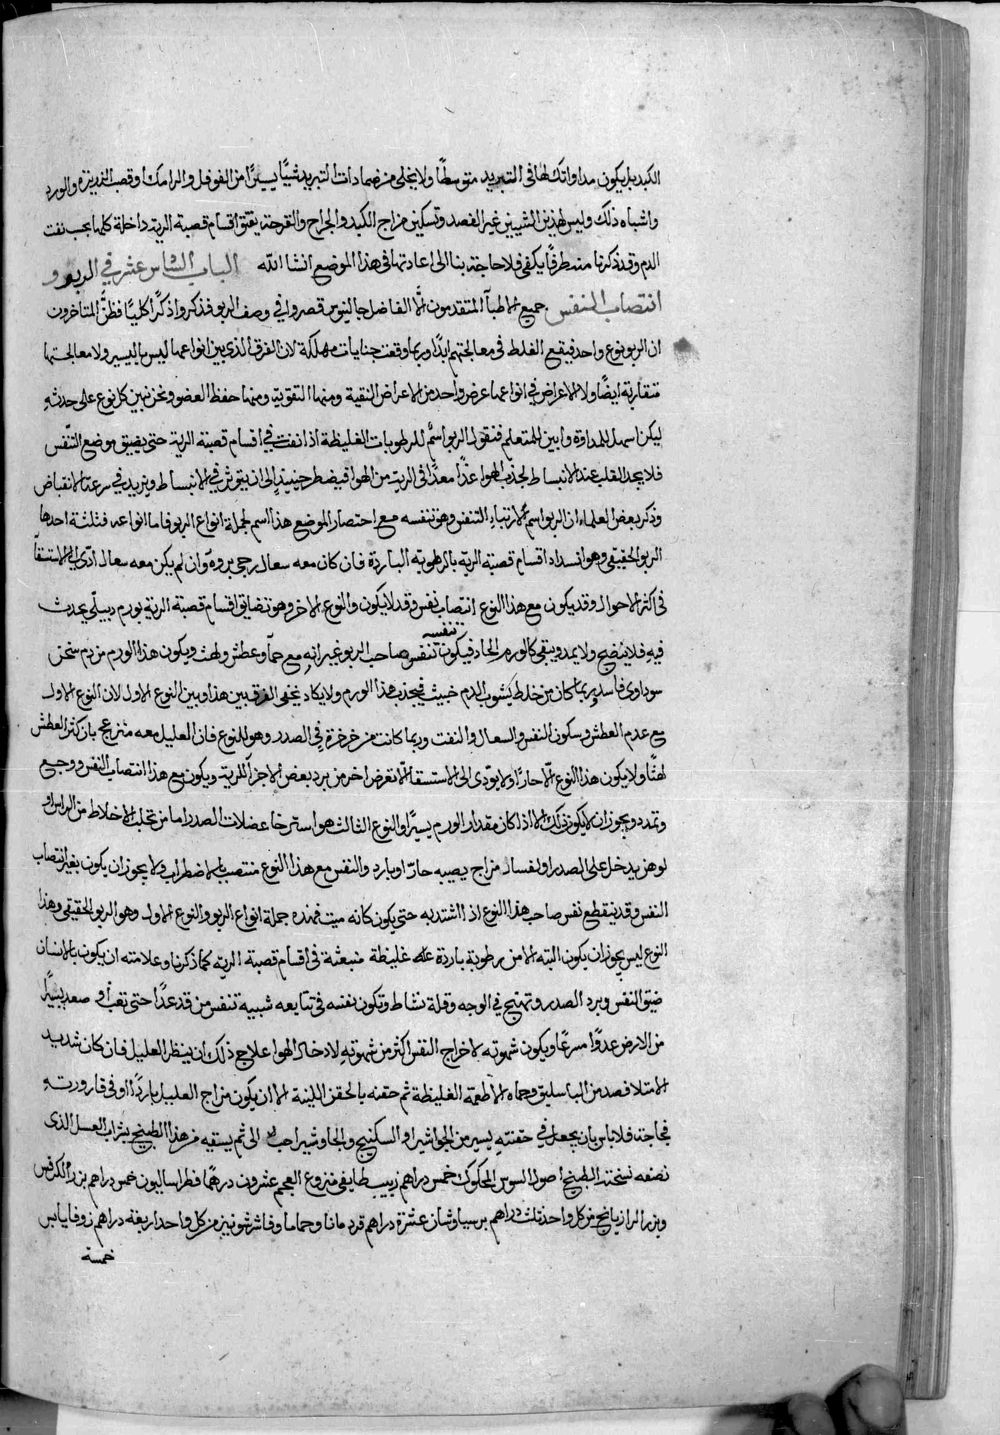 الكبد بل يكون مداواتك لها فى التبريد متوسطًا ولا يخلى من ضمادات التبريد شيًا يسيرًا من الفوفل والرامك وقصب الذريره والورد
واشباه ذلك وليس لهذين الشيين غير الفصد وتسكين مزاج الكبد والجراح والقرحة يقتو اقسام قصبة الرية داخلة كلها يجب نفث
الدم وقد ذكرنا منه طرفًا يكفى فلا حاجة بنا الى اعادتها فى هذا الموضع انشا الله الباب السادس عشر في الربو و
انتصاب النفس جميع الاطبآ المتقدمون الا الفاضل جالينوس قصروا في وصف الربو فذكروا ذكرًا كليًا فظنَّ المتاخرون
ان الربو نوع واحد فيقع الغلط فى معالجتهم ابدًا وربما وقعت جنايات مهلكة لان الفرق الذى بين انواعها ليس باليسير ولا معالجتها
متقاربة ايضًا ولا الاعراض في انواعها عرض واحد من الاعراض النقية ومنها التقوية ومنها حفظ العضو ونحن نبين كل نوع على حدته
ليكن اسهل للمداوة وابين للمتعلم فنقول الربو اسمٌ للرطوبات الغليظة اذا نفث في اقسام قصبة الرية حتى يضيق موضع التنفس
فلا يجد القلب عند الانبساط لجذب الهوا غذًا معدًا فى الرية من الهوا فيضطر حينيذٍ الى ان يتوثر في الانبساط ويزيد في سرعة الانقباض
وذكر بعض العلماء ان الربو اسم لارتباء التنفس وهو تنفسه مع احتصار الموضع هذا اسم لجملة انواع الربو فاما انواعه فثلثة احدها
الربو الحقيقى وهو انسداد اقسام قصبة الرية بالرطوبه الباردة فان كان معه سعال رجى بروه وان لم يكن معه سعال ادى الى الاستسقآ
فى اكثر الاحوال وقد يكون مع هذا النوع انتصاب نفس وقد لا يكون والنوع الاخر وهو تضايق اقسام قصبة الرية بورم دبيلى يحدث
فيه فلا ينضج ولا يمد ويبقى كالورم الحاد فيكون تنفسه تنفس صاحب الربو غير انه مع حمآ وعطش ولهث ويكون هذا الورم من دم سخن
سوداوى فاسد وربما كان من خلط يشوب الدم خبيث فيجذب هذا الورم ولا يكاد يخفى الفرق بين هذا وبين النوع الاول لان النوع الاول
مع عدم العطش وسكون النفس والسعال والنفث وربما كانت خرخرة فى الصدر وهو للنوع فان العليل معه منزعج بان كثر العطش
لهثًا ولا يكون هذا النوع الا حارًا ولا يودى الى الاستسقا الا لعرض اخر من برد بعض الاجزآ للرية ويكون مع هذا انتصاب النفس ووجع
وتمدد ويجوز ان لا يكون ذلك الا اذا كان مقدار الورم يسيرًا والنوع الثالث هو استرخا عضلات الصدر اما من تحلب الاخلاط من الراس او
لوهن يدخل على الصدر او لفساد مزاج يصيبه حارّ او بارد والنفس مع هذا النوع منتصب بالاضطراب ولا يجوز ان يكون بغير انتصاب
النفس وقد ينقطع نفس صاحب هذا النوع اذ اشتد به حتى يكون كانه ميت فهذه جملة انواع الربو والنوع الاول وهو الربو الحقيقى وهذا
النوع ليس يجوز ان يكون البته الا من رطوبة باردة غليظة منبعثة فى اقسام قصبة الرية كما ذكرنا وعلامته ان يكون بالانسان
ضيق النفس وبرد الصدر وتهيج في الوجه وقلة نشاط وتكون نفسه فى تتابعه شبيه تنفس من قد عدا حتى تعب او صعد يسيرًا
من الارض عدوًا مسرعًا ويكون شهوته لاخراج النفس اكثر من شهوته لادخال الهوا علاج ذلك ان ينظر العليل فان كان شديد
الامتلا فصد من الباسليق وحماه الاطعمة الغليظة ثم حقنه بالحقن اللينة الا ان يكون مزاج العليل باردًا او فى قارورته
فجاجة فلا باس بان يجعل في حقنته يسير من الجواشير او السكنيج والجاوشير احب الى ثم يسقيه من هذا الطبيخ بشراب العسل الذى
نصفه نسخة الطبيخ اصول السوس المحكوك خمس دراهم زبيب طايفى منزوع العجم عشرون درهمًا فطراساليون خمس دراهم بزر الكرفس
وبزر الرازيانج من كل واحد ثلث دراهم برسياوشان عشرة دراهم قردمانا وحماما وفاشرشونيز من كل واحد اربعة دراهم زوفا يابس
خمسة